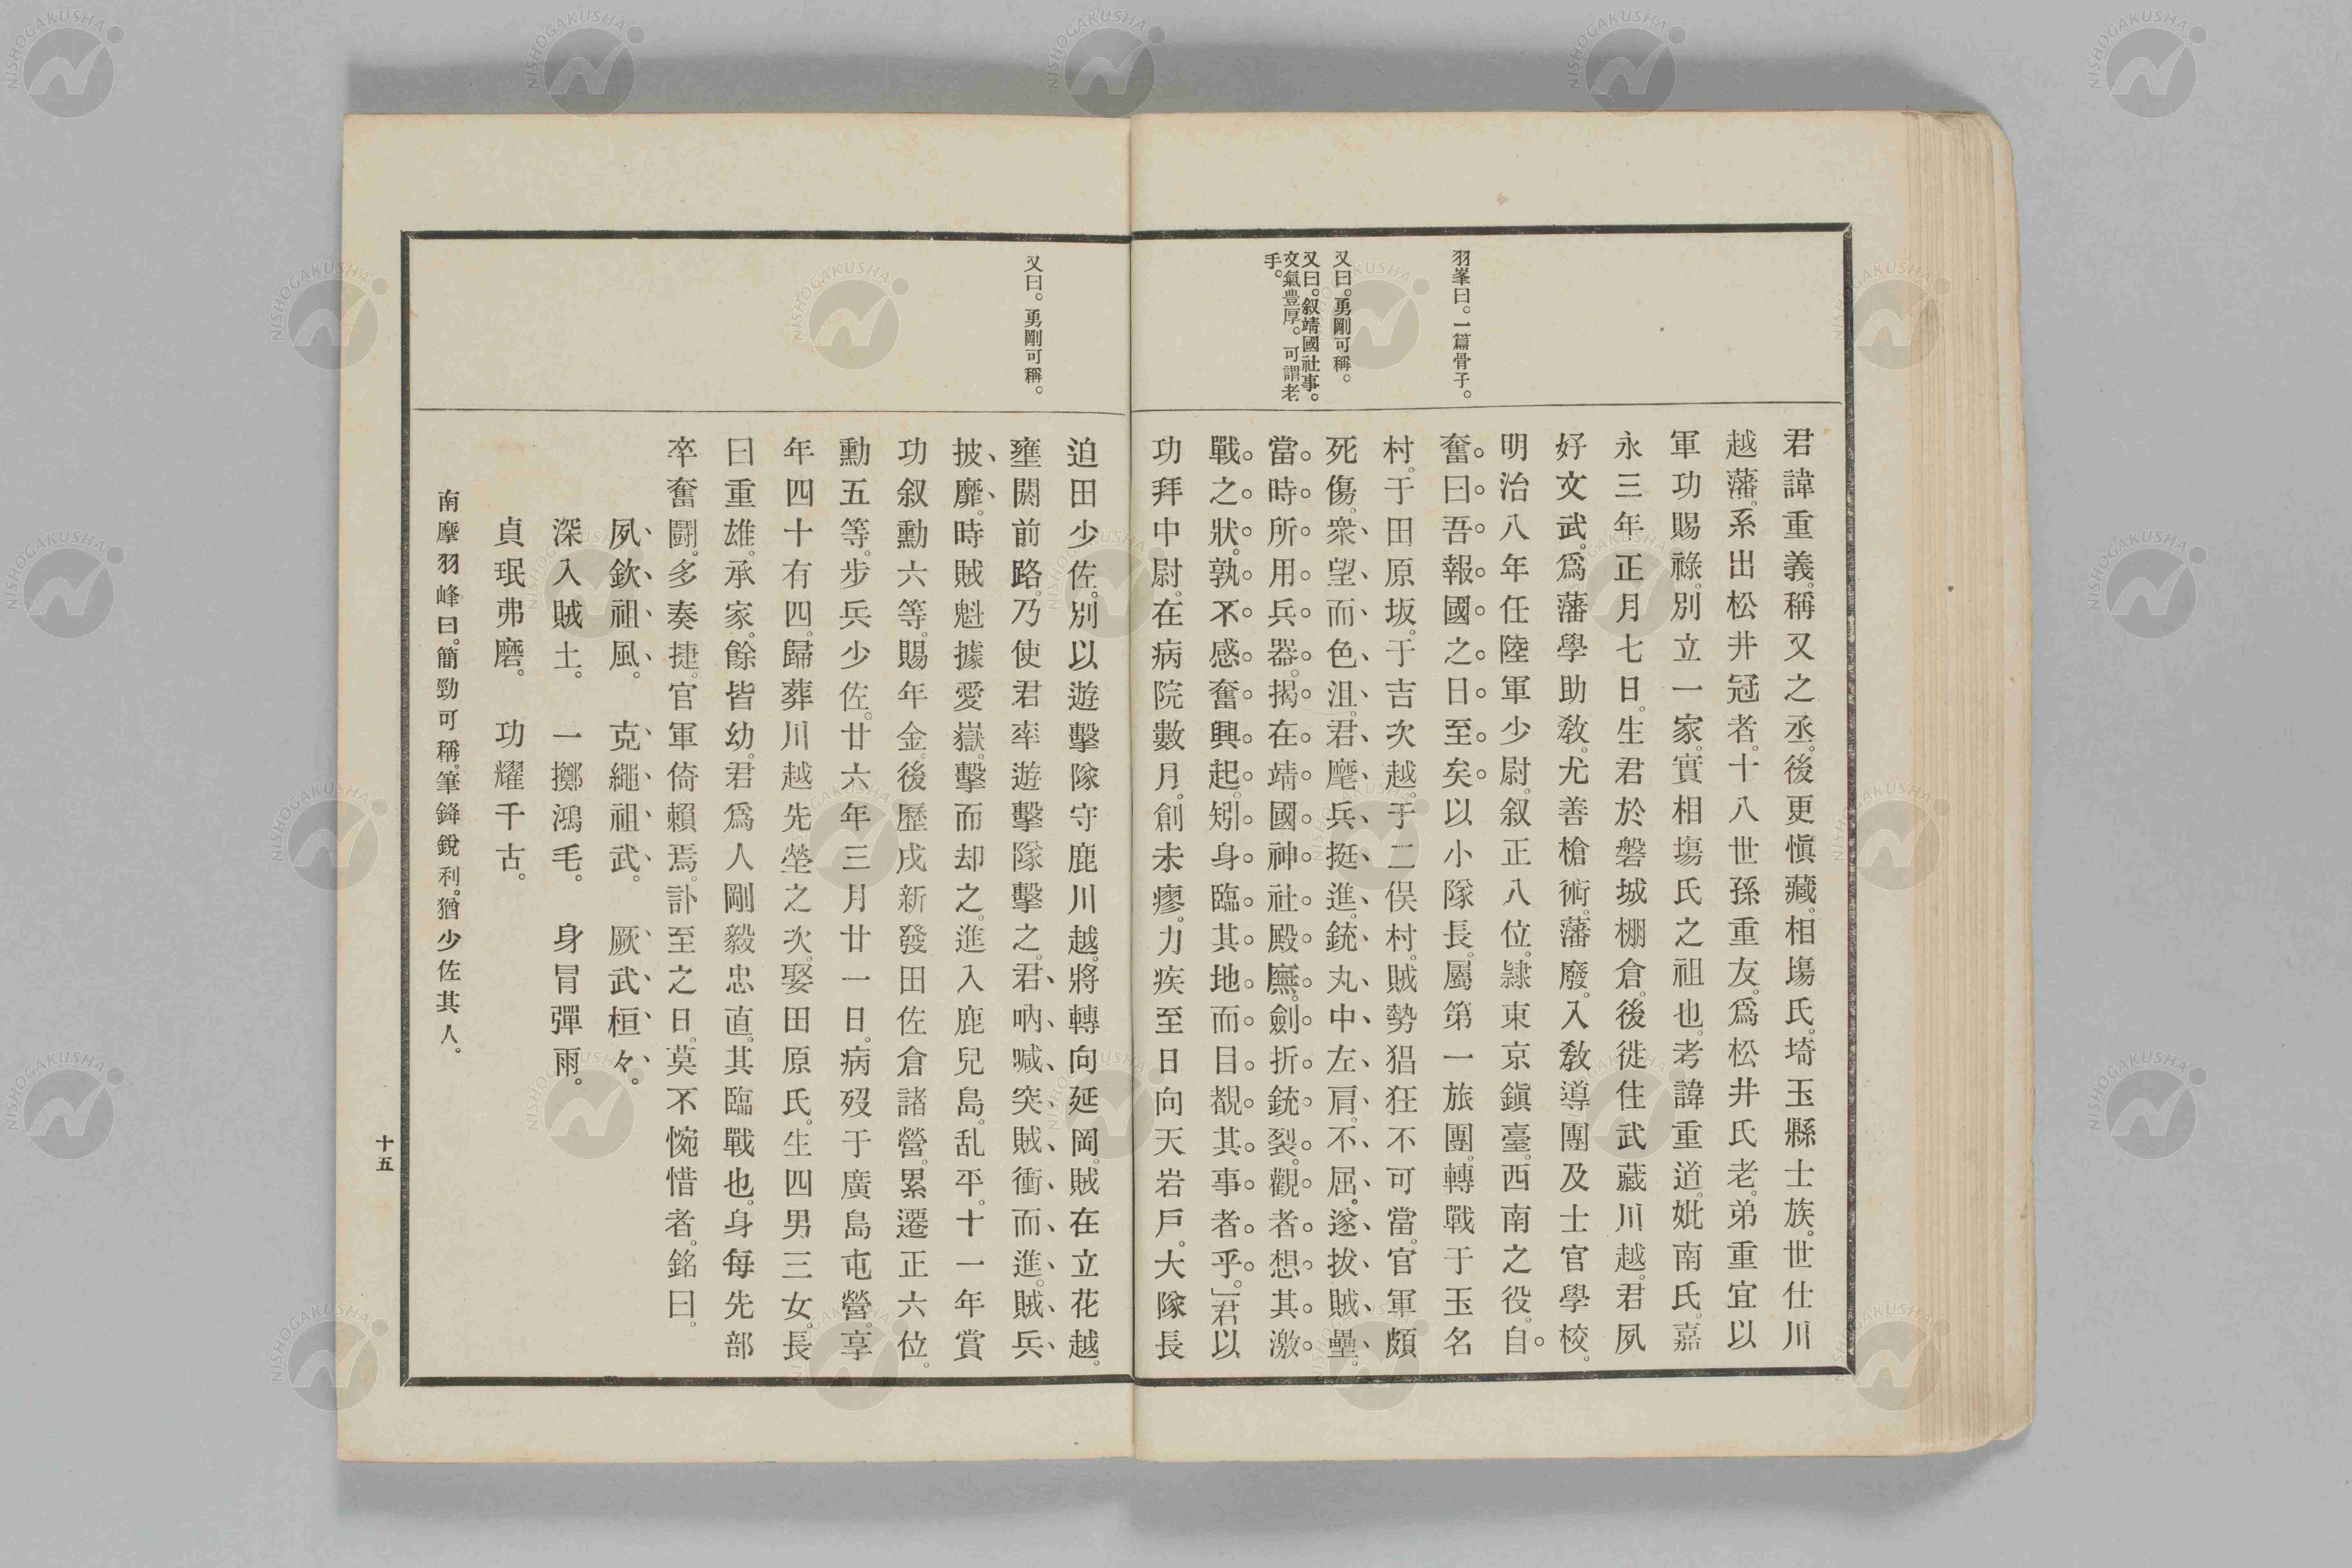 羽峯曰。一篇骨子。
又曰。勇剛可稱。
又曰。叙靖國社事。
文氣豊厚。可謂老
手。
君諱重義。稱又之丞。後更愼藏。相塲氏。埼玉縣士族。世仕川
越藩。系出松井冠者。十八世孫重友。爲松井氏老。弟重宜以
軍功賜祿。別立一家。實相塲氏之祖也。考諱重道。妣南氏。嘉
永三年正月七日。生君於磐城棚倉。後徙住武藏川越。君夙
好文武。爲藩學助教。尤善槍術。藩廢。入敎導團及士官學校。
明治八年任陸軍少尉。叙正八位。隷東京鎭臺。西南之役。自
奮曰。吾報國之日至矣。以小隊長。屬第一旅團。轉戰于玉名
村。于田原坂。于吉次越。于二俣村。賊勢猖狂不可當。官軍頗
死傷。衆望而色沮。君麾兵挺進。銃丸中左肩。不屈。遂拔賊壘。
當時所用兵器。揭在靖國神社殿廡。劍折銃裂。觀者想其激
戰之狀。孰不感奮興起。矧身臨其地而目覩其事者乎。」君以
功拜中尉。在病院數月。創未瘳。力疾至日向天岩戶。大隊長
又曰。勇剛可稱。
迫田少佐。別以遊擊隊守鹿川越。將轉向延岡。賊在立花越。
壅閼前路。乃使君率遊擊隊擊之。君吶喊突賊衝而進。賊兵
披靡。時賊魁據愛嶽。擊而却之。進入鹿兒島。乱平。十一年賞
功叙勳六等。賜年金。後歷戍新發田佐倉諸營。累遷正六位。
勳五等。步兵少佐。廿六年三月廿一日。病歿于廣島屯營。享
年四十有四。歸葬川越先塋之次。娶田原氏。生四男三女。長
曰重雄。承家。餘皆幼。君爲人剛毅忠直。其臨戰也。身每先部
卒奮鬪。多奏捷。官軍倚賴焉。訃至之日。莫不惋惜者。銘曰。
夙欽祖風。　克繩祖武。　厥武桓々。
深入賊土。　一擲鴻毛。　身冒彈雨。
貞珉弗磨。　功耀千古。
南摩羽峰曰。簡勁可稱。筆鋒銳利。猶少佐其人。
十五